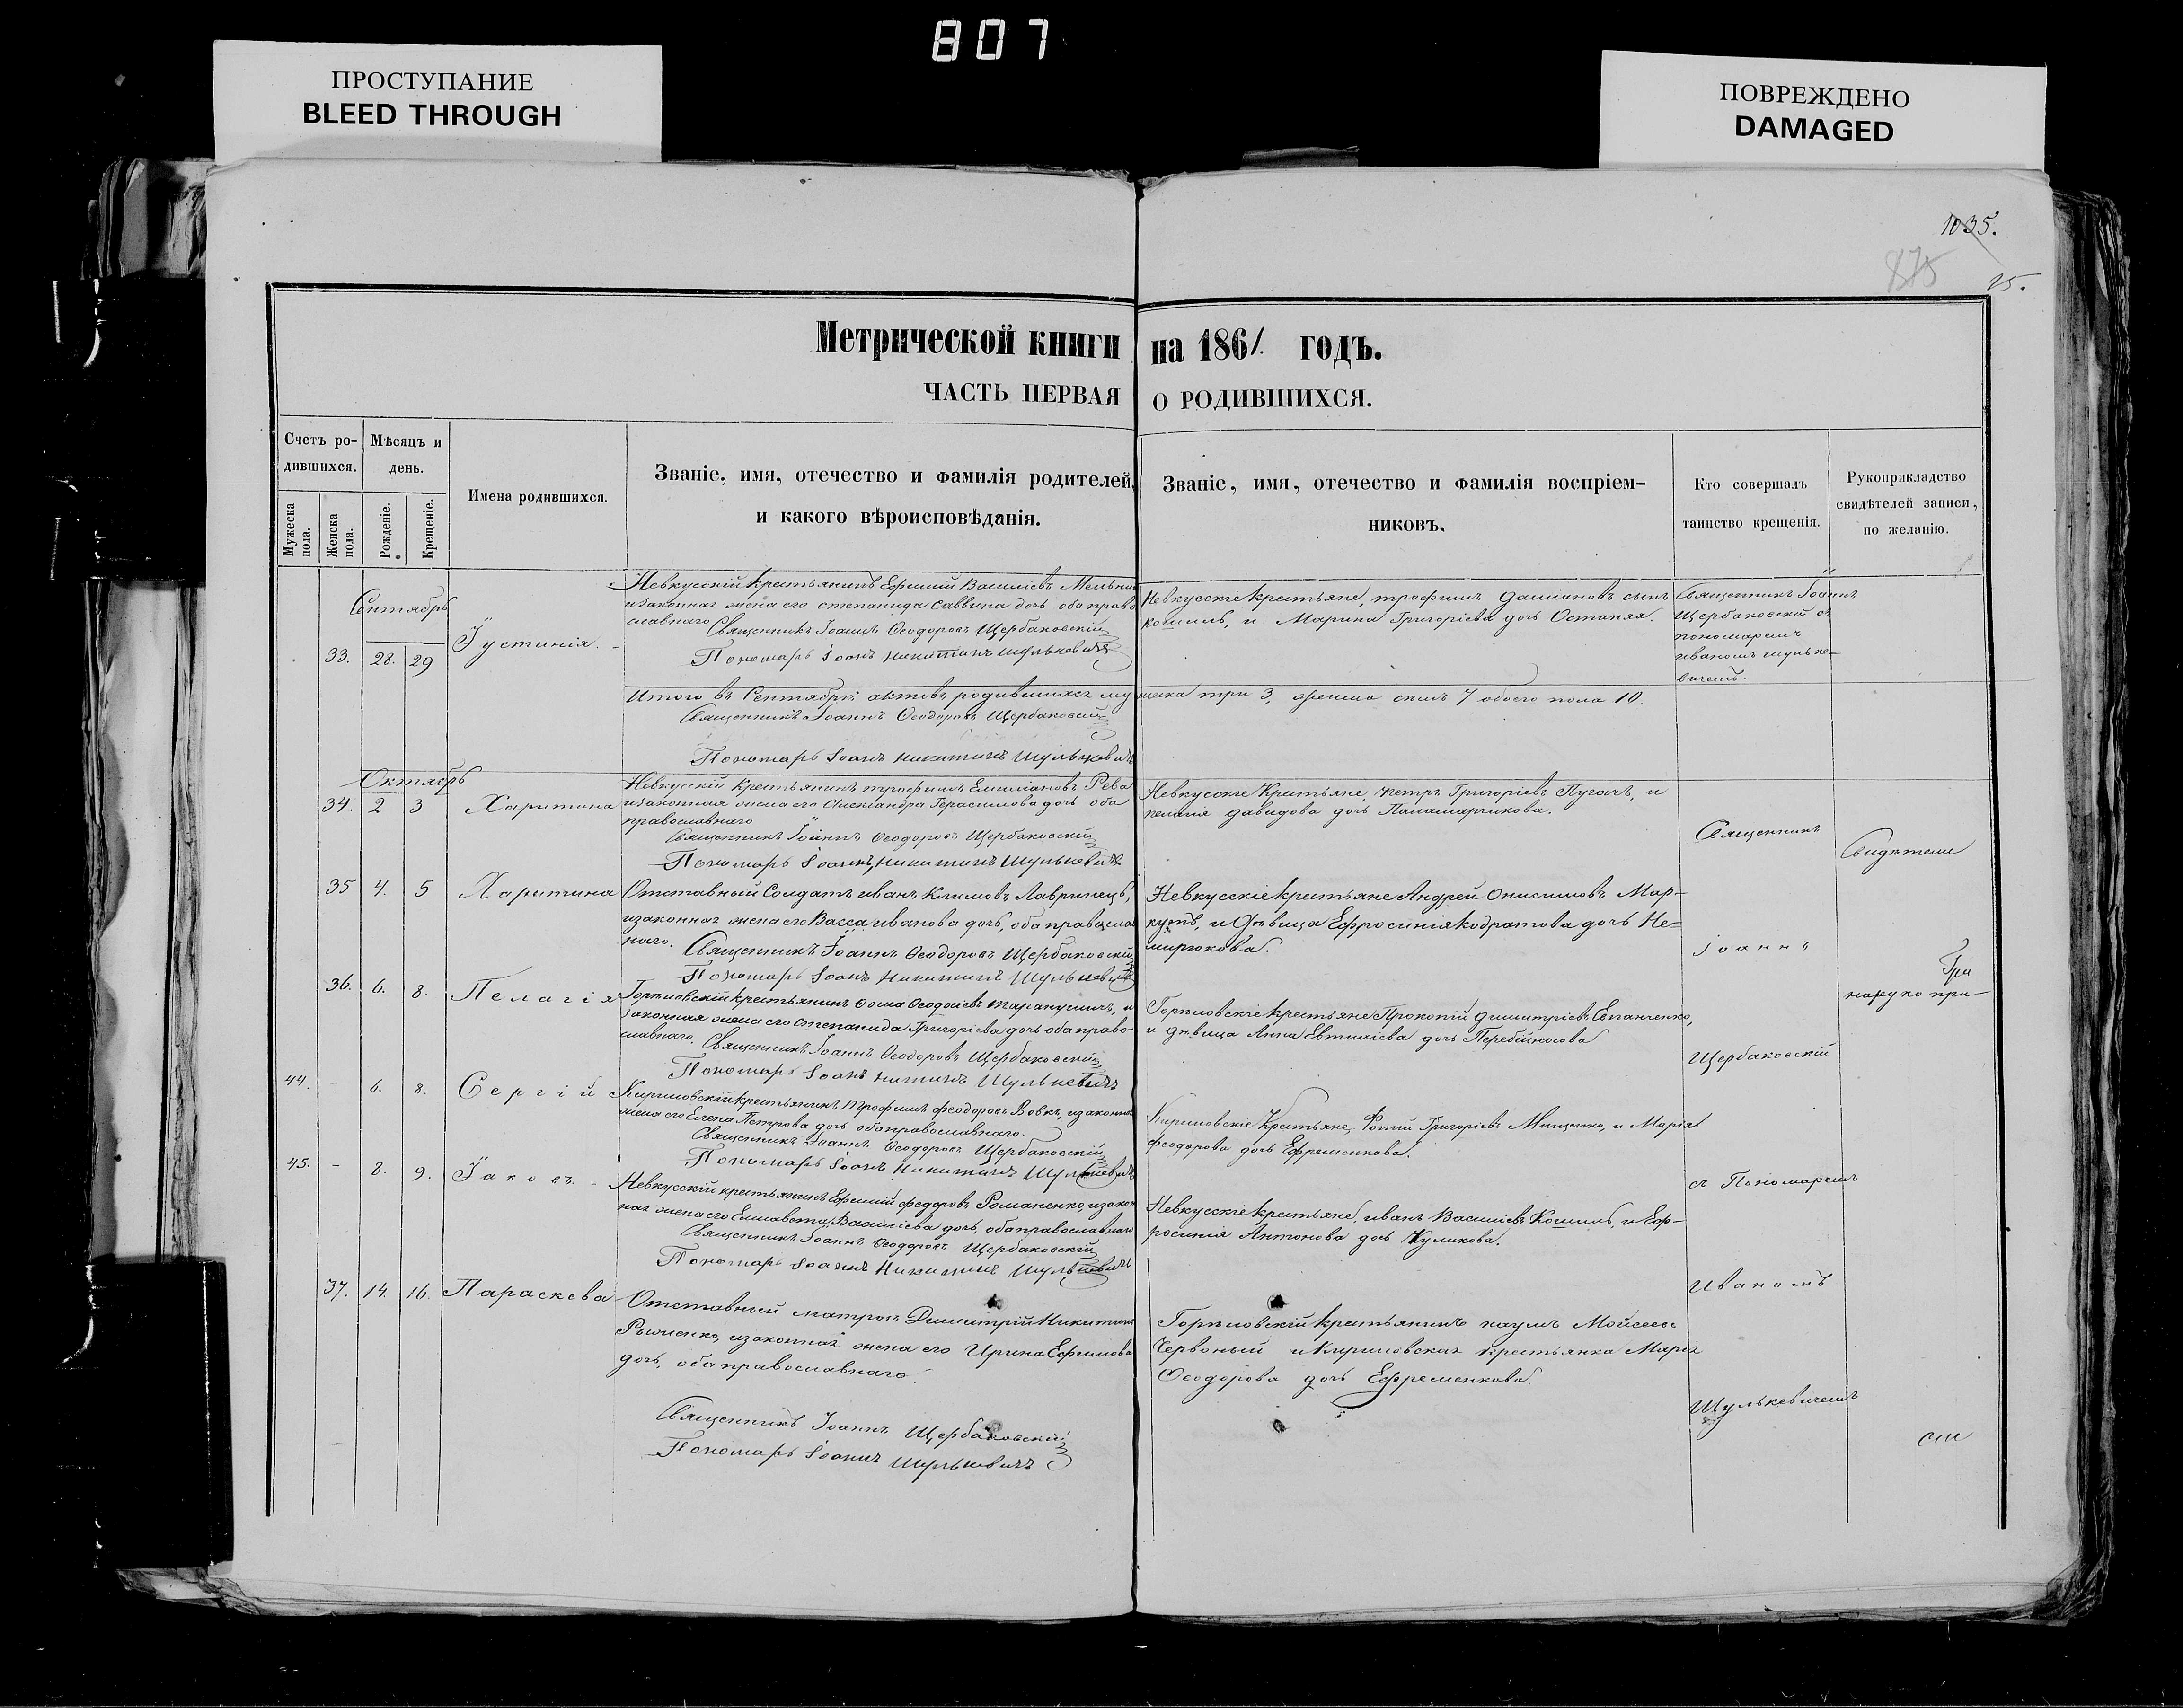 807
ПРОСТУПАНИЕ
BLEED THROUGH
ПОВРЕЖДЕНО
DAMAGED
1035.
875
Метрической книги на 1861. годъ.
ЧАСТЬ ПЕРВАЯ О РОДИВШИХСЯ.
Счетъ ро-
дившихся.
Мужеска
пола.
Женска
пола.
Мѣсяцъ и
день.
Рожденіе.
Крещеніе.
Имена родившихся.
Званіе, имя, отечество и фамилія родителей,
и какого вѣроисповѣданія.
Званіе, имя, отечество и фамилія воспріем-
никовъ.
Кто совершалъ
таинство крещенія.
Рукоприкладство
свидѣтелей записи,
по желанію.
Сентябрь
33. 28. 29 Іустинія.
Невкусскій крестьянинъ Ефимій Василіевъ
изаконная жена его степанида саввина дочь оба право
славнаго
Священникъ Іоаннъ Ѳеодоровъ Щербаковскій
Пономарь Іоанъ никитинъ шулькевичъ
Невкусскіе крестьяне, трофимъ даміановъ сынъ
кошиль, и Марина Григоріева дочь
Священникъ Іоаннъ
Щербаковскій съ
пономаремъ
иваномъ шульке-
вичемъ.
Итого въ Сентябрѣ актовъ родившихся мужеска три 3, женска семъ 7 обоего пола 10.
Священникъ Іоаннъ Ѳеодоровъ Щербаковскій
Пономарь Іоанъ никитинъ Шулькевичъ
Октябрь
34. 2 3 Харитина
Невкусскій крестьянинъ трофимъ Емиліановъ Рева
изаконная жена его Александра Герасимова дочь оба
православнаго
Священникъ Іоаннъ Ѳеодоровъ Щербаковскій
Пономарь Іоанъ, никитинъ Шулькевичъ
Невкусскіе Крестьяне, петръ Григоріевъ Пугачъ, и
пелагія давидова дочь Паламарчикова.
Священникъ
Свидѣтели
35 4. 5 Харитина
Отставный Солдатъ иванъ Климовъ Лавринецъ,
изаконная жена его Васса иванова дочь, оба правосла
наго.
Священникъ Іоаннъ Ѳеодоровъ Щербаковскій
Пономарь Іоанъ Никитинъ Шулькевичъ
Невкусскіе крестьяне Андрей Онисимовъ Мар-
и дѣвица Ефросинія Кодратова дочь Не-
мирюкова.
Іоаннъ
36. 6. 8. Пелагія
Горѣловскій крестьянинъ Ѳома и
законная жена его Степанида Григоріева дочь оба право-
славнаго.
Священникъ Іоаннъ Ѳеодоровъ Щербаковскій
Пономарь Іоанъ Шулькевичъ
Горѣловскіе крестьяне Прокопій димитріевъ
и дѣвица Анна Евтихіева дочь Перебійносова
Щербаковскій
44. - 6. 8. Сергій
Кириловскій крестьянинъ Трофимъ феодоровъ Вовкъ, изаконная
жена его Елена Петрова дочь оба православнаго.
Священникъ Іоаннъ Ѳеодоровъ Щербаковскій
Пономарь Іоанъ Никитинъ Шулькевичъ
Кириловскіе Крестьяне, Фотій Григоріевъ Мищенко, и Марія
феодорова дочь Ефременкова.
съ Пономаремъ
45. - 8. 9. Іаковъ. -
Невкусскій крестьянинъ Ефимій федоровъ Романенко, изакон
ная жена его Елисавета Василіева дочь, оба православнаго
Священникъ Іоаннъ Ѳеодоровъ Щербаковскій
Пономарь Іоанъ Никитинъ Шулькевичъ
Невкусскіе крестьяне, иванъ Василіевъ Кошиль, и Еф-
росинія Антонова дочь Куликова.
Иваномъ
37. 14. 16. Параскева
Отставный матрозъ Димитрій Никитинъ
изаконная жена его Ирина Ефимова
дочь, оба православнаго.
Священникъ Іоаннъ Щербаковскій
Пономарь Іоанъ Шулькевичъ
Горѣловскій крестьянинъ наумъ Мойсеев
Червоный и Кириловская крестьянка Марія
Ѳеодорова дочь Ефременкова.
Шулькевичемъ